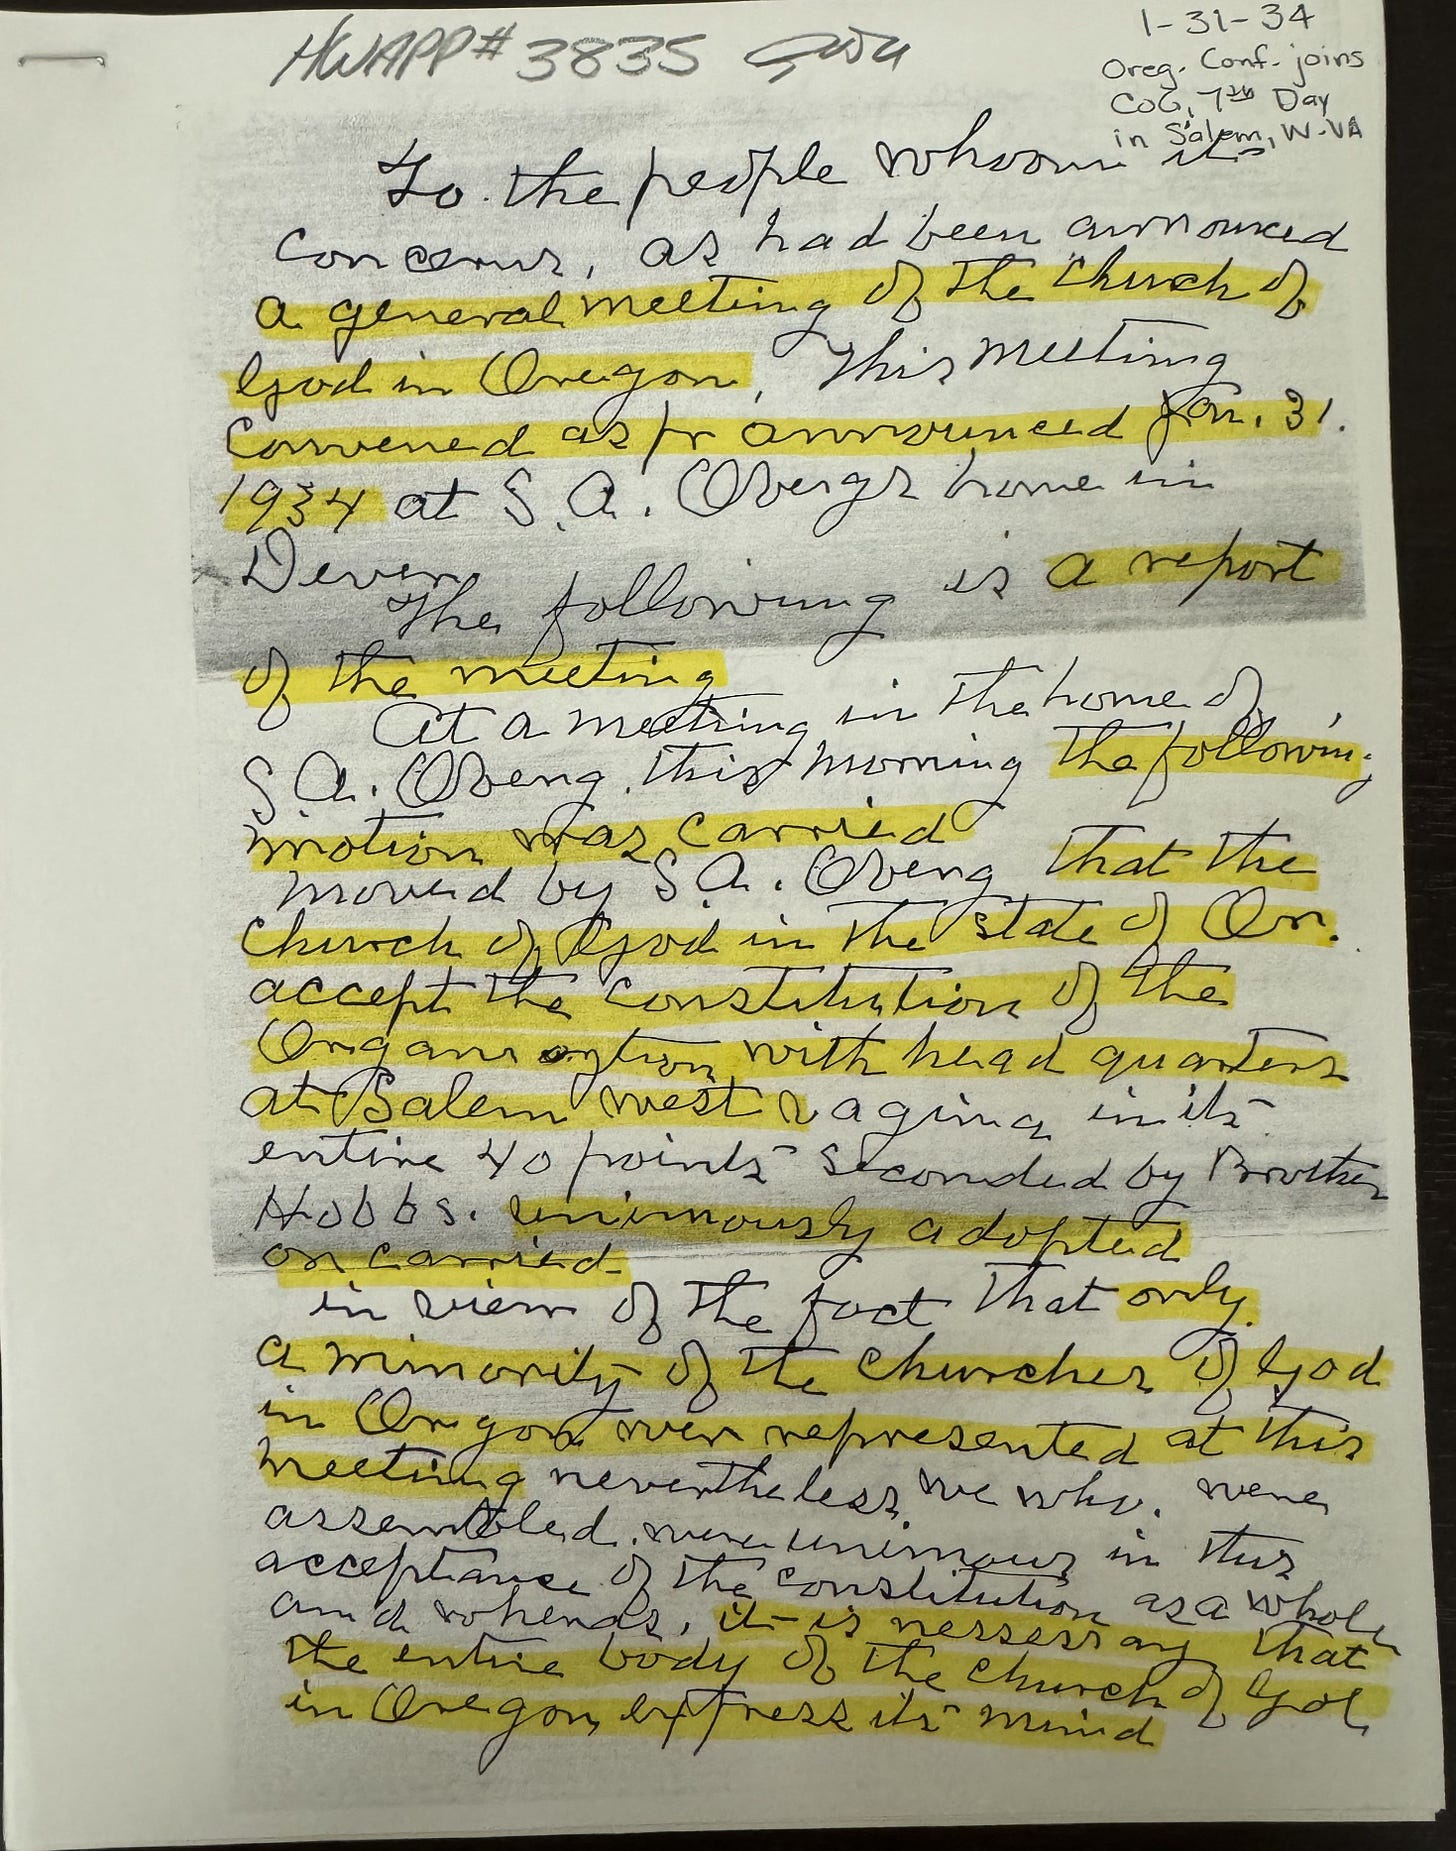 HWAPP# 3835
1-31-34
Oreg. Conf. joins
CoG, 7th Day
in Salem, W-VA
To the people whoom it
Concerns, as had been announced
a general meeting of the Church of
God in Oregon, This meeting
Convened as pr announced Jan. 31.
1934 at S. A. Obergs home in
Dever
The following is a report
of the meeting
At a meeting in the home of
S. A. Oberg this morning the following
motion was carried
moved by S. A. Oberg that the
Church of God in the state of Or.
accept the constitution of the
with head quarters
at Salem west vagina in its
entire 40 points seconded by Brother
Hobbs. unimously adopted
or carried
in view of the fact that only
a minority of the Churches of God
in Oregon wer represented at this
meeting nevertheless we who were
assembled were unimous in this
acceptance of the constitution as a whole
and wheras, it is nessessary that
the entire body of the Church of God
in Oregon express its mind